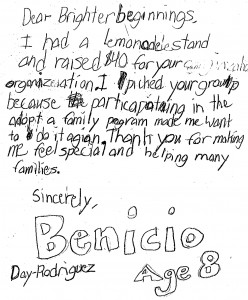 Dear Brighter beginnings.
I had a lemonade stand
and raised $40 for your
organization. I picked your group
because particapating in the
adopt a family pegram made me want
to do it agian. Thank you for making
me feel special and helping many
families.
Sincerely,
Benicio
Day-Rodriguez Age 8